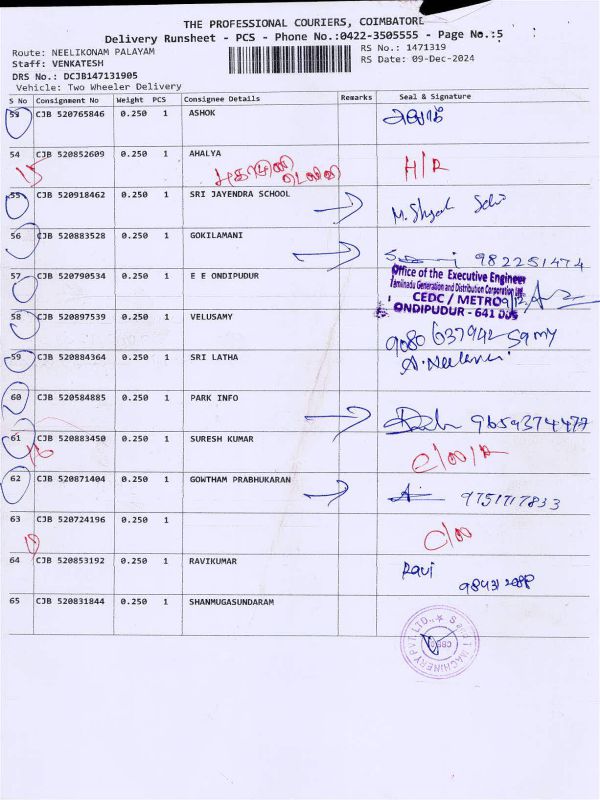 THE PROFESSIONAL COURIERS, COIMBATORE
Delivery Runsheet - PCS - Phone No.:0422-3505555 - Page No.:5
Route: NEELIKONAM PALAYAM
RS No.: 1471319
Staff: VENKATESH
RS Date: 09-Dec-2024
DRS No.: DCJB147131905
Vehicle: Two Wheeler Delivery
S No Consignment No Weight PCS Consignee Details Remarks Seal & Signature
53 CJB 520765846 0.250 1 ASHOK
54 CJB 520852609 0.250 1 AHALYA
15 H/R
55 CJB 520918462 0.250 1 SRI JAYENDRA SCHOOL
56 CJB 520883528 0.250 1 GOKILAMANI
9822251474
57 CJB 520790534 0.250 1 E E ONDIPUDUR
Office of the Executive Engineer
Tamilnadu Generation and Distribution Corporation Ltd
CEDC / METRO
ONDIPUDUR - 641 005
58 CJB 520897539 0.250 1 VELUSAMY
9080637942 Samy
59 CJB 520884364 0.250 1 SRI LATHA
60 CJB 520584885 0.250 1 PARK INFO
9659374477
61 CJB 520883450 0.250 1 SURESH KUMAR
62 CJB 520871404 0.250 1 GOWTHAM PRABHUKARAN
9751717833
63 CJB 520724196 0.250 1
64 CJB 520853192 0.250 1 RAVIKUMAR Ravi
65 CJB 520831844 0.250 1 SHANMUGASUNDARAM
MACHINERY PVT. LTD.